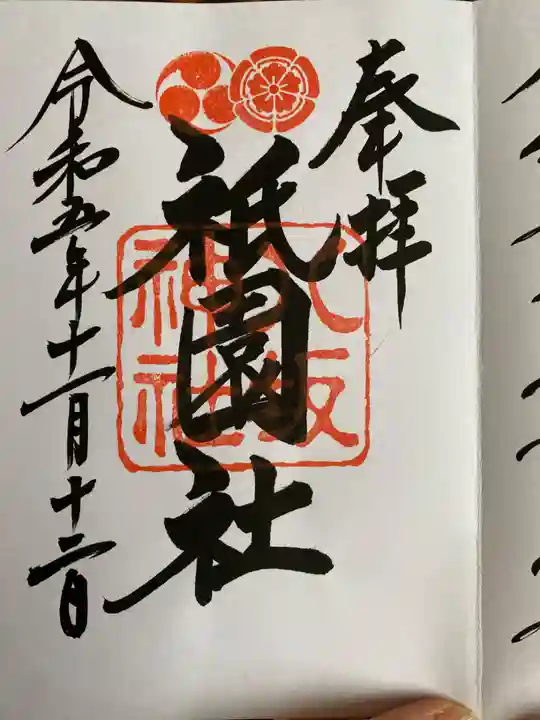 奉拝
祇園社
八坂
神社
令和五年十一月十二日